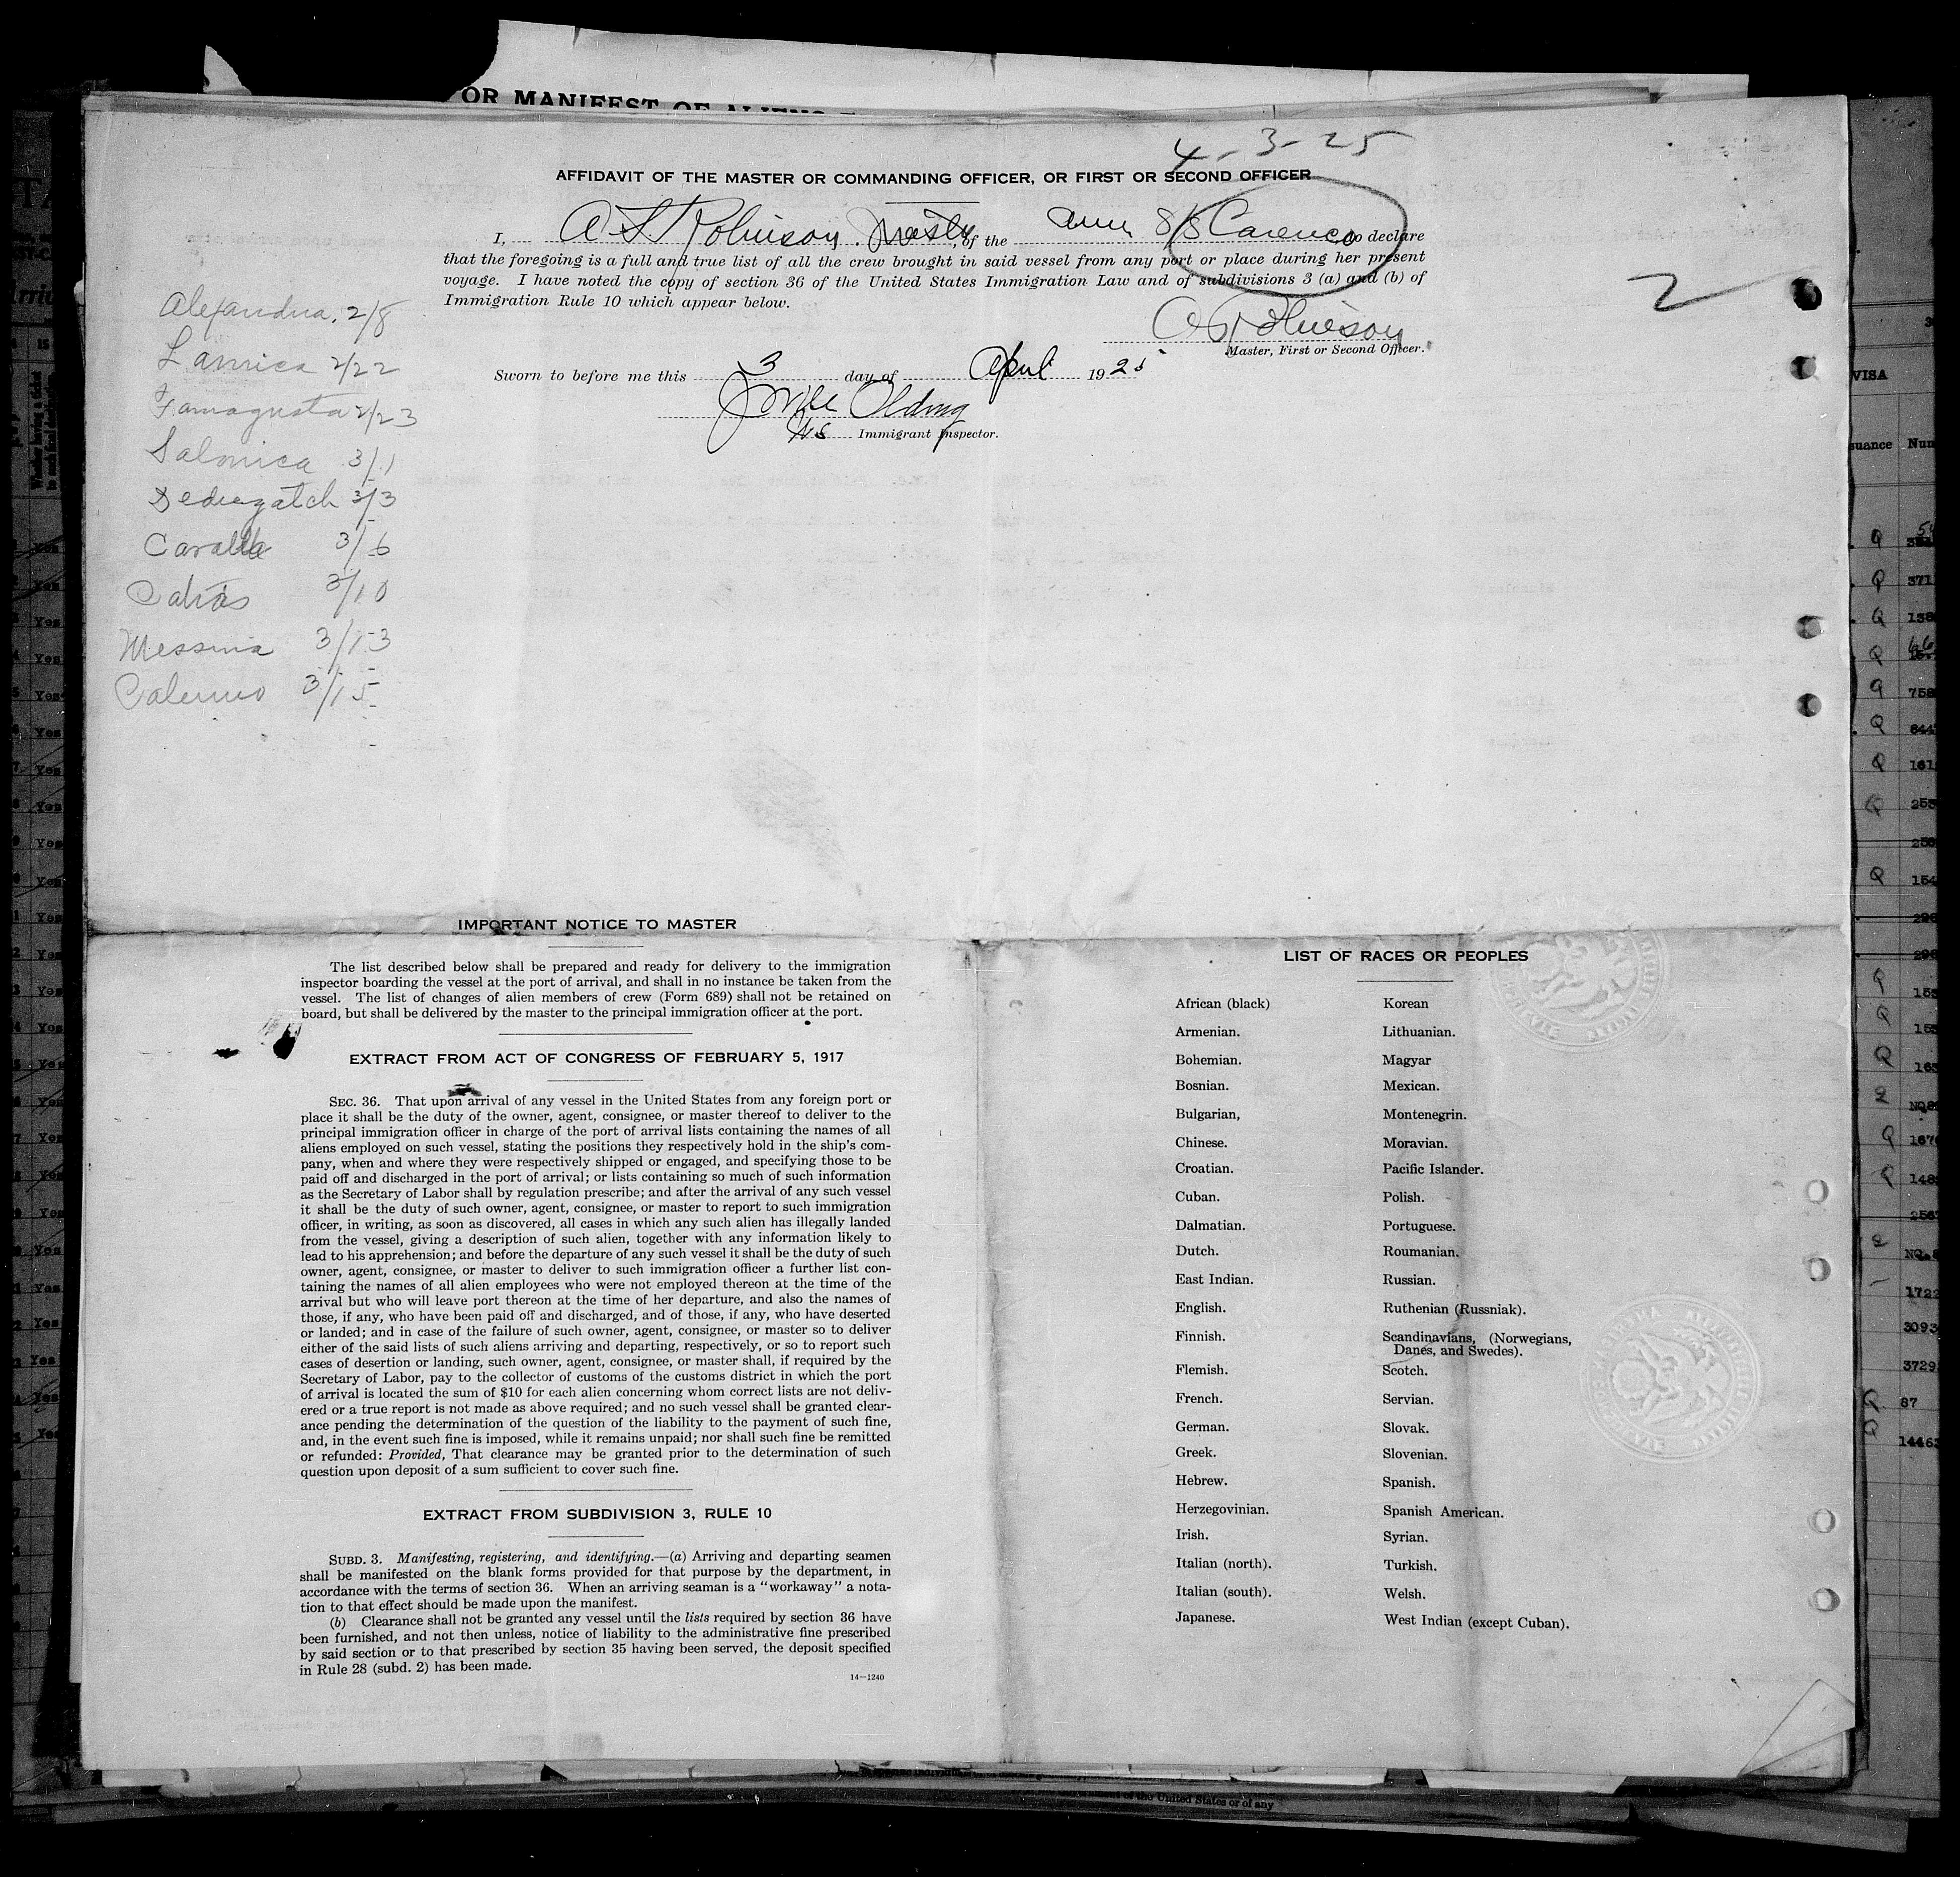 OR MANIFEST OF ALIENS
4-3-25
AFFIDAVIT OF THE MASTER OR COMMANDING OFFICER, OR FIRST OR SECOND OFFICER
I, A S Robinson Master, of the Amn S/S Carenco do declare
that the foregoing is a full and true list of all the crew brought in said vessel from any port or place during her present
voyage. I have noted the copy of section 36 of the United States Immigration Law and of subdivisions 3 (a) and (b) of
Immigration Rule 10 which appear below.
2
Robinson
Master, First or Second Officer.
Sworn to before me this 3 day of April 1925
Immigrant Inspector.
Alexandria, 2/8
Larnica 2/22
Famagusta 2/23
Salonica 3/1
Dedeagatch 3/3
Cavalla 3/6
Patras 3/10
Messina 3/13
Palermo 3/15
IMPORTANT NOTICE TO MASTER
The list described below shall be prepared and ready for delivery to the immigration
inspector boarding the vessel at the port of arrival, and shall in no instance be taken from the
vessel. The list of changes of alien members of crew (Form 689) shall not be retained on
board, but shall be delivered by the master to the principal immigration officer at the port.
EXTRACT FROM ACT OF CONGRESS OF FEBRUARY 5, 1917
SEC. 36. That upon arrival of any vessel in the United States from any foreign port or
place it shall be the duty of the owner, agent, consignee, or master thereof to deliver to the
principal immigration officer in charge of the port of arrival lists containing the names of all
aliens employed on such vessel, stating the positions they respectively hold in the ship's com-
pany, when and where they were respectively shipped or engaged, and specifying those to be
paid off and discharged in the port of arrival; or lists containing so much of such information
as the Secretary of Labor shall by regulation prescribe; and after the arrival of any such vessel
it shall be the duty of such owner, agent, consignee, or master to report to such immigration
officer, in writing, as soon as discovered, all cases in which any such alien has illegally landed
from the vessel, giving a description of such alien, together with any information likely to
lead to his apprehension; and before the departure of any such vessel it shall be the duty of such
owner, agent, consignee, or master to deliver to such immigration officer a further list con-
taining the names of all alien employees who were not employed thereon at the time of the
arrival but who will leave port thereon at the time of her departure, and also the names of
those, if any, who have been paid off and discharged, and of those, if any, who have deserted
or landed; and in case of the failure of such owner, agent, consignee, or master so to deliver
either of the said lists of such aliens arriving and departing, respectively, or so to report such
cases of desertion or landing, such owner, agent, consignee, or master shall, if required by the
Secretary of Labor, pay to the collector of customs of the customs district in which the port
of arrival is located the sum of $10 for each alien concerning whom correct lists are not deliv-
ered or a true report is not made as above required; and no such vessel shall be granted clear-
ance pending the determination of the question of the liability to the payment of such fine,
and, in the event such fine is imposed, while it remains unpaid; nor shall such fine be remitted
or refunded: Provided, That clearance may be granted prior to the determination of such
question upon deposit of a sum sufficient to cover such fine.
EXTRACT FROM SUBDIVISION 3, RULE 10
SUBD. 3. Manifesting, registering, and identifying.—(a) Arriving and departing seamen
shall be manifested on the blank forms provided for that purpose by the department, in
accordance with the terms of section 36. When an arriving seaman is a "workaway" a nota-
tion to that effect should be made upon the manifest.
(b) Clearance shall not be granted any vessel until the lists required by section 36 have
been furnished, and not then unless, notice of liability to the administrative fine prescribed
by said section or to that prescribed by section 35 having been served, the deposit specified
in Rule 28 (subd. 2) has been made.
14—1240
LIST OF RACES OR PEOPLES
African (black)
Armenian.
Bohemian.
Bosnian.
Bulgarian,
Chinese.
Croatian.
Cuban.
Dalmatian.
Dutch.
East Indian.
English.
Finnish.
Flemish.
French.
German.
Greek.
Hebrew.
Herzegovinian.
Irish.
Italian (north).
Italian (south).
Japanese.
Korean
Lithuanian.
Magyar
Mexican.
Montenegrin.
Moravian.
Pacific Islander.
Polish.
Portuguese.
Roumanian.
Russian.
Ruthenian (Russniak).
Scandinavians, (Norwegians,
Danes, and Swedes).
Scotch.
Servian.
Slovak.
Slovenian.
Spanish.
Spanish American.
Syrian.
Turkish.
Welsh.
West Indian (except Cuban).
VISA
of the United States or of any